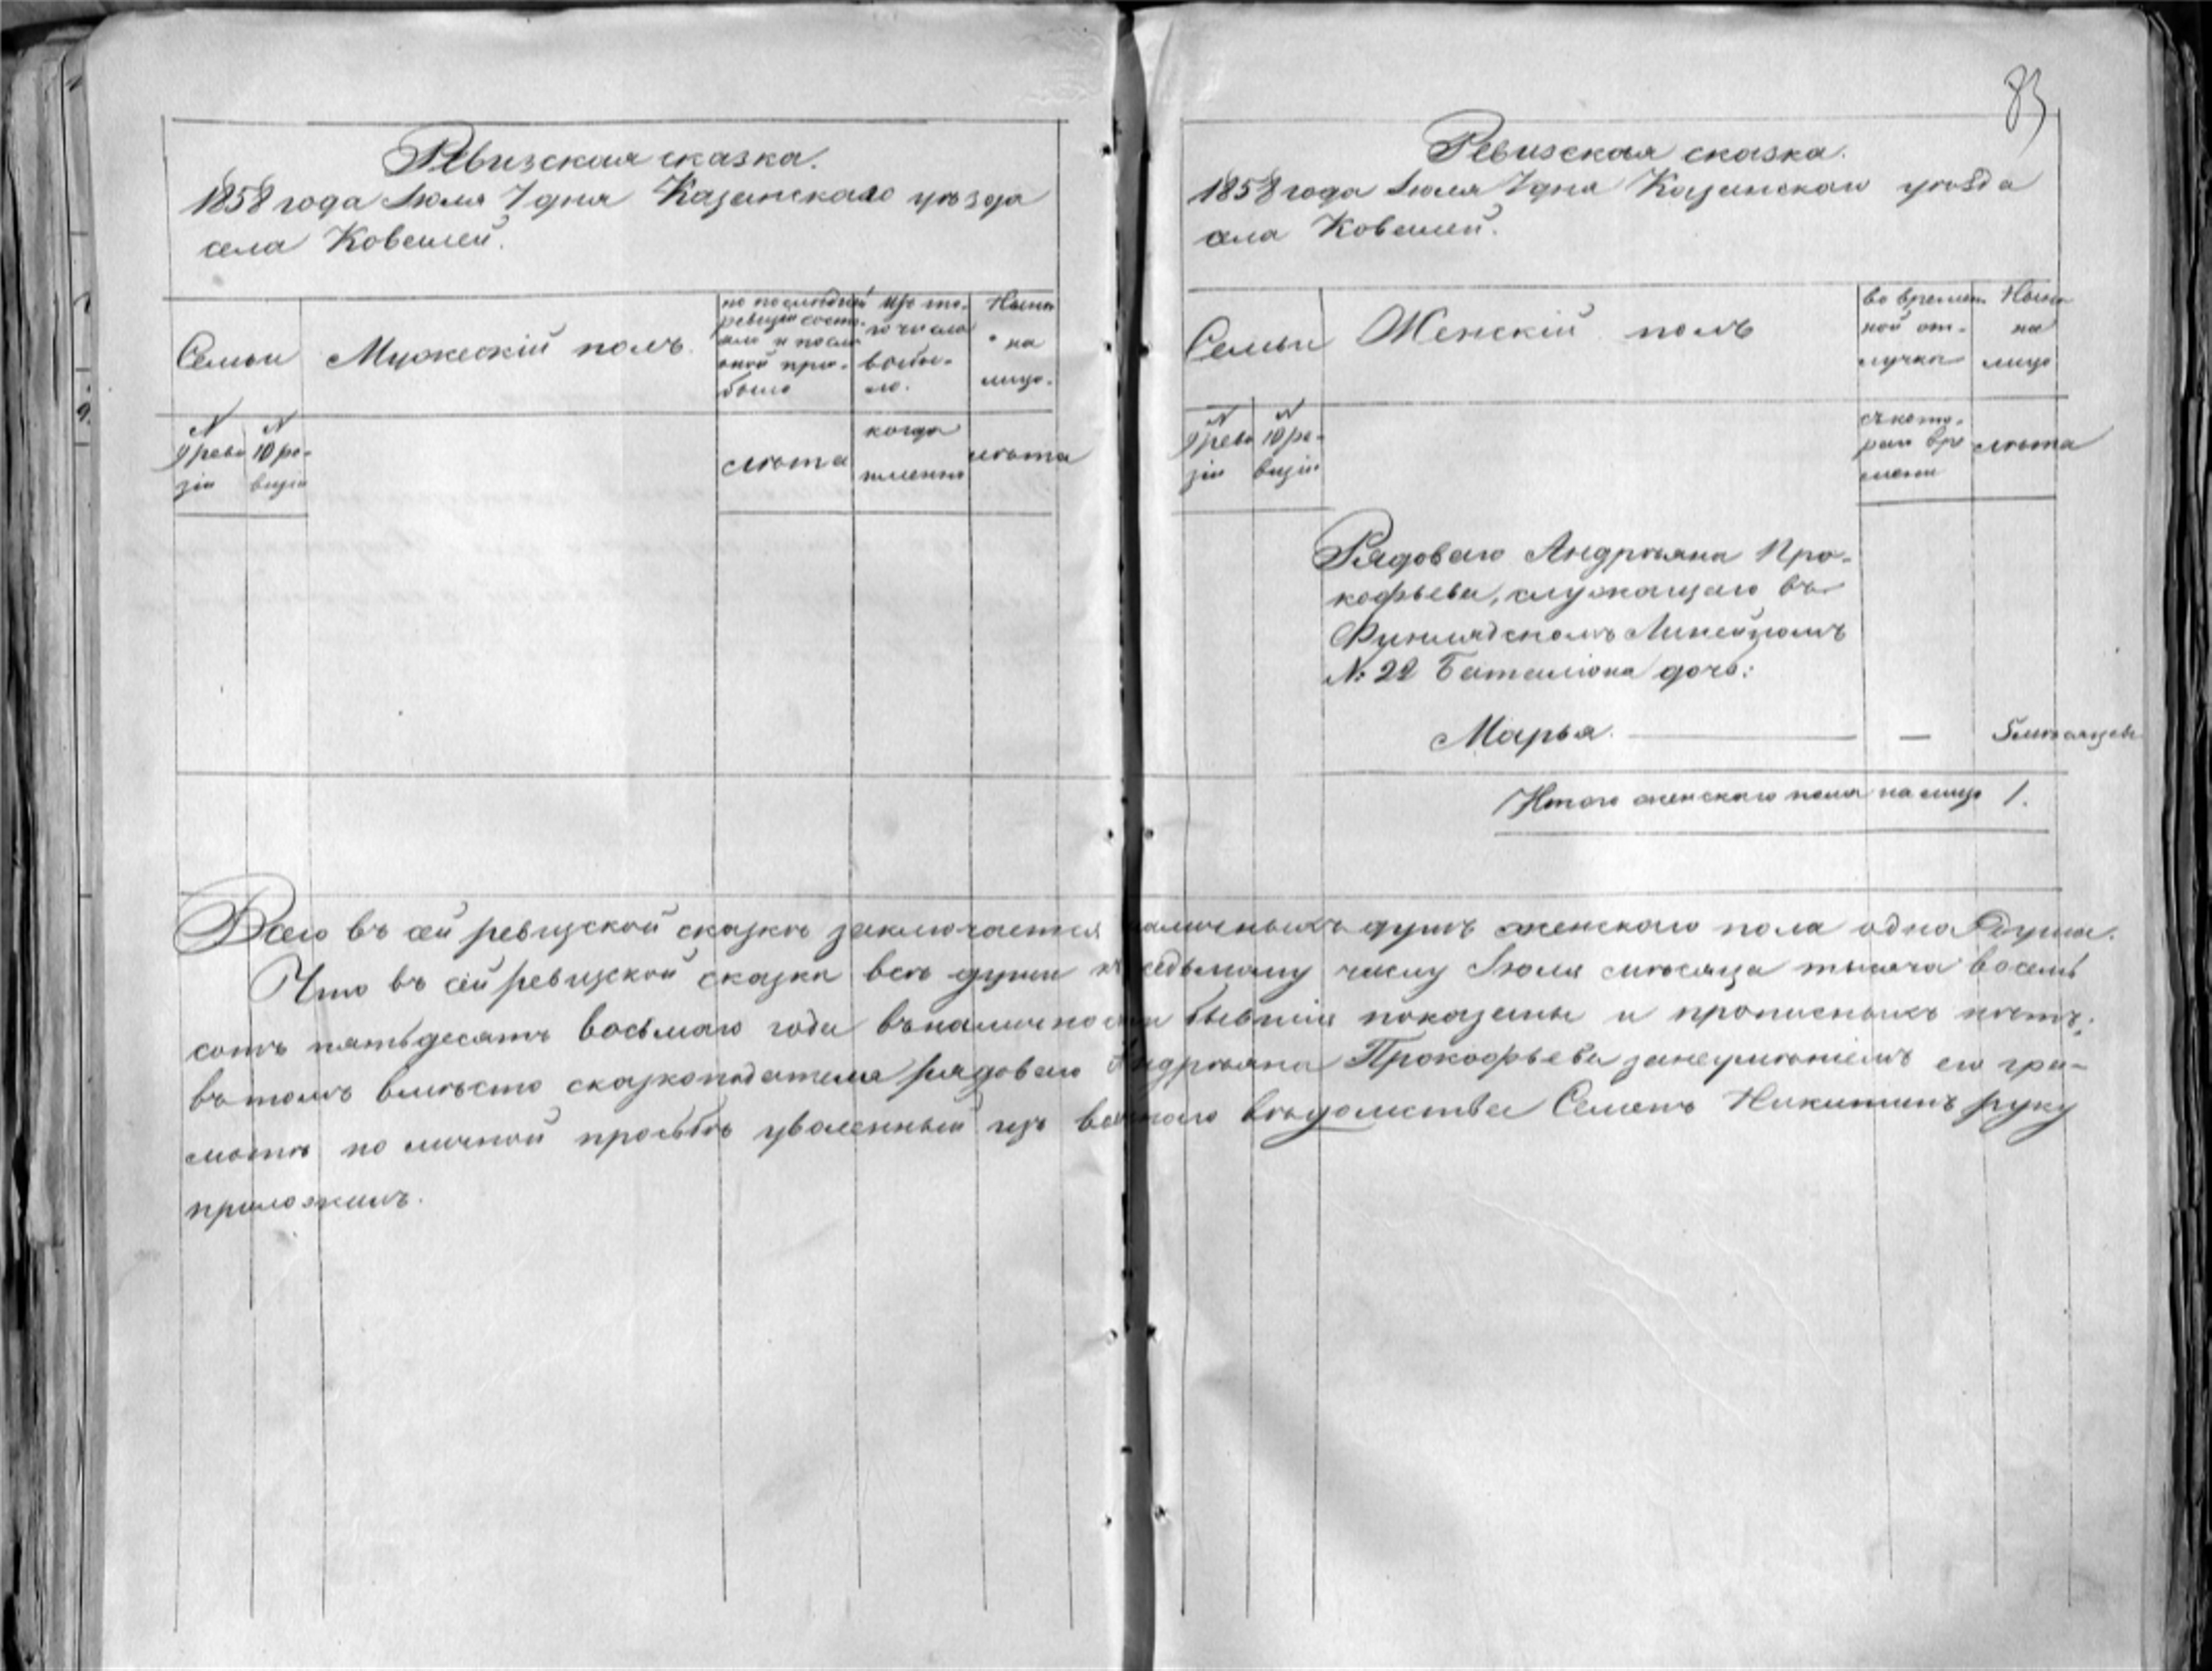 83
Ревизская сказка.
1858 года Іюля 7 дня Казанскаго уѣзда
села Ковалей.
Семьи
Мужескій полъ.
по послѣдней
ревизіи состо-
яло и послѣ
оной при-
было
Изъ то-
го числа
выбы-
ло.
Нынѣ
на
лицо.
N
9 реви
зіи
N
10 ре-
визіи
лѣта
когда
именно
лѣта
Ревизская сказка.
1858 года Іюля 7 дня Казанскаго уѣзда
села Ковалей.
Семьи
Женскій полъ
во времен
ной от-
лучкѣ
Нынѣ
на
лицо
N
9 реви
зіи
N
10 ре-
визіи
съ кото-
раго вре
мени
лѣта
Рядоваго Андрѣяна Про-
кофьева, служащаго въ
Финлядскомъ Линейномъ
№ 22 Баталіона дочь:
Марья. — — 5 мѣсяцевъ
Итого женскаго пола на лицо 1.
Всего въ сей ревизской сказкѣ заключается наличныхъ душъ женскаго пола одна душа.
Что въ сей ревизской сказкѣ всѣ души къ седьмому числу Іюля мѣсяца тысяча восемь
сотъ пятьдесятъ восьмаго года въ наличности бывшіе показаны и прописныхъ нѣтъ;
въ томъ вмѣсто сказкоподателя рядоваго Андрѣяна Прокофьева за неумѣніемъ его гра-
мотѣ по личной просьбѣ уволенный изъ военнаго вѣдомства Семенъ Никитинъ руку
приложилъ.